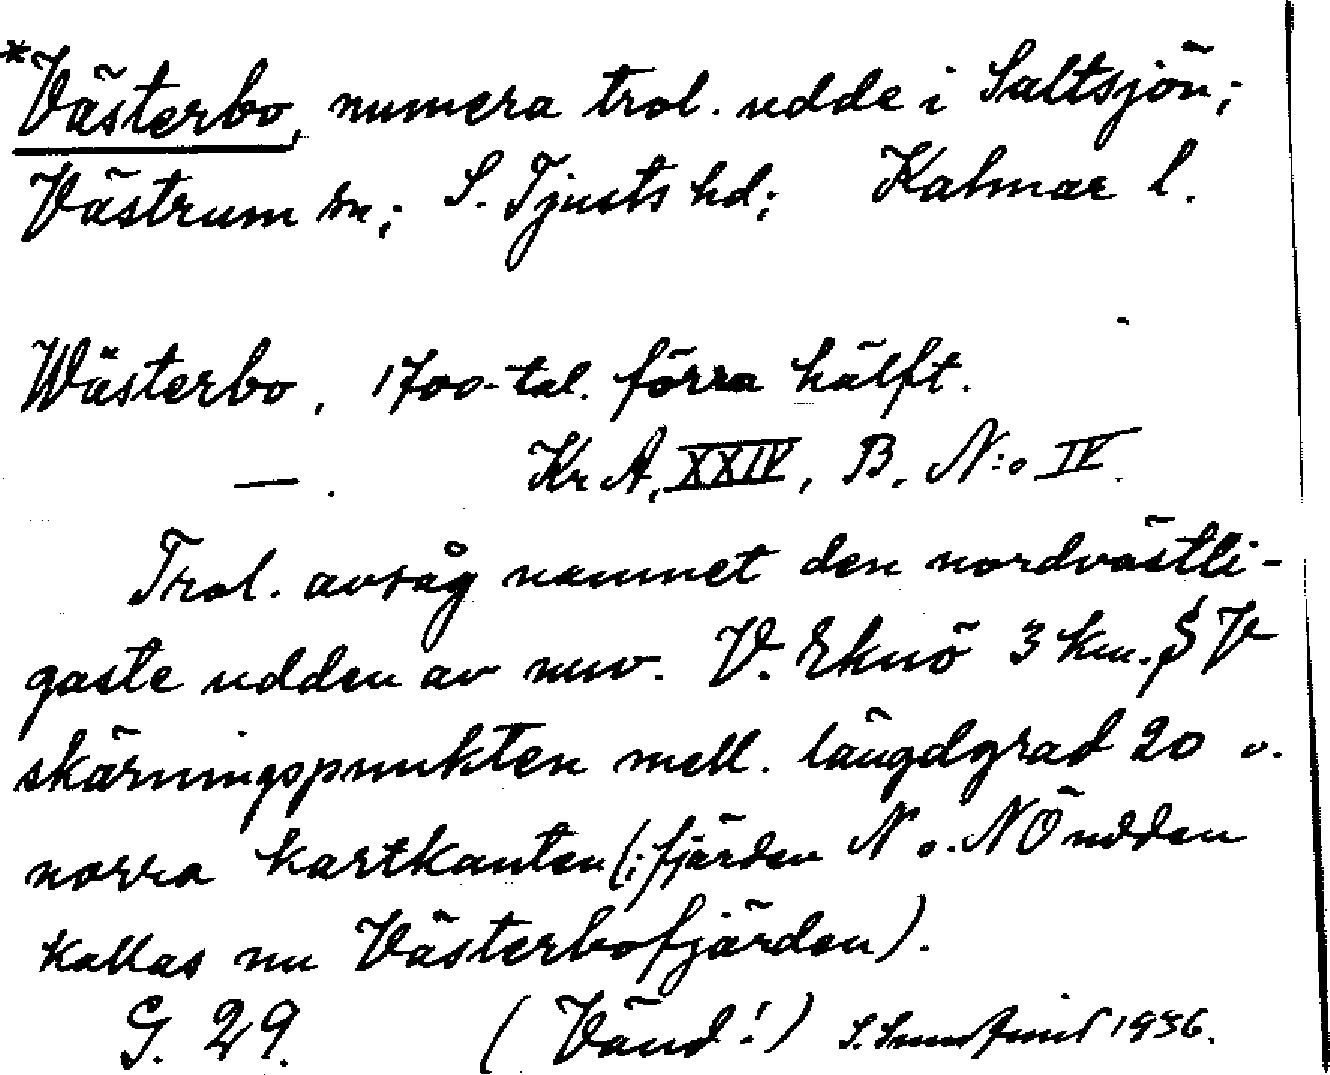 *Västerbo, numera trol. udde i Saltsjön;
Västrum sn; S. Tjusts hd; Kalmar l.
Wästerbo, 1700-tal. förra hälft.
—. Kr A, XXIV, B. N:o IV.
Trol. avsåg namnet den nordvästli-
gaste udden av nuv. V. Eknö 3 km. S V
skärningspunkten mell. längdgrad 20 o.
norra kartkanten (: fjärden N o. NÖ udden
kallas nu Västerbofjärden).
G. 29. (Vänd!) S. 1936.